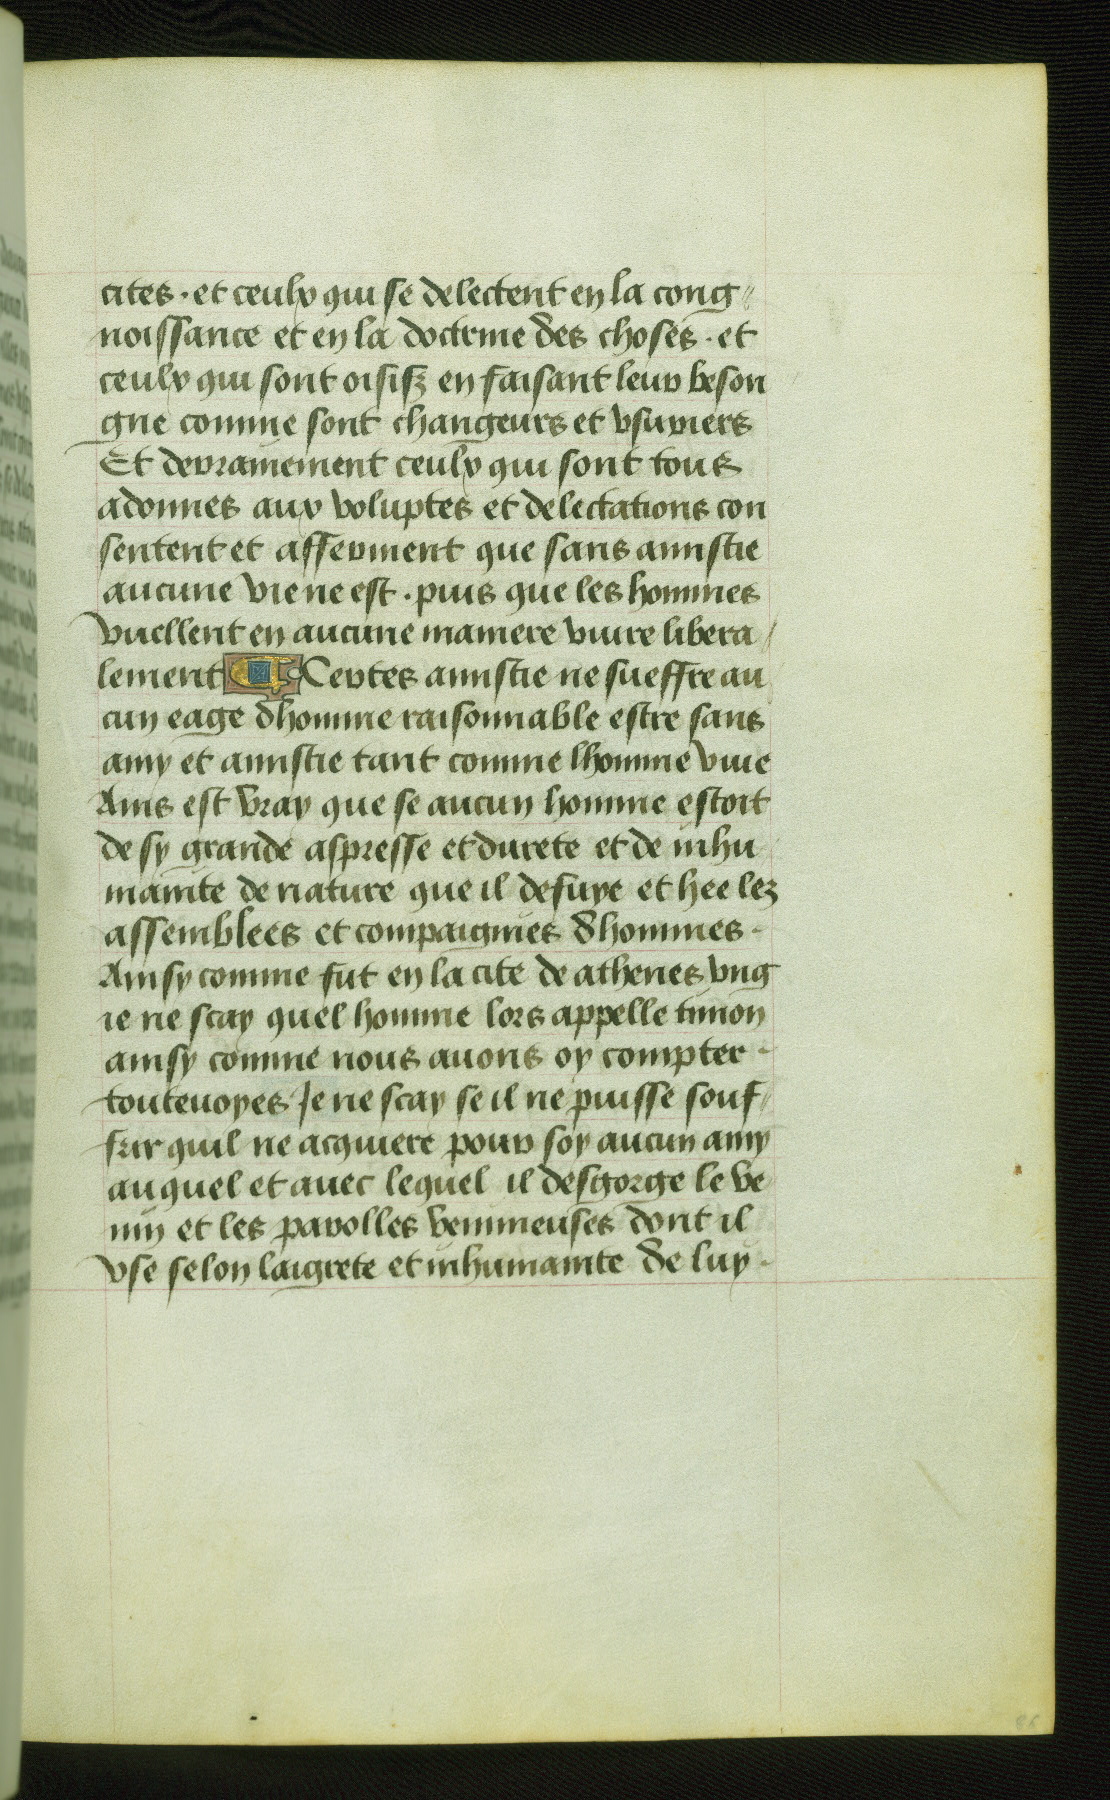 cites · et ceulx qui se delectent en la cong〃
noissance et en la doctrine des choses · et
ceulx qui sont oisifz en faisant leur beson
gne comme sont changeurs et vsuriers
Et derrainement ceulx qui sont tous
adonnes aux voluptes et delectations con
sentent et afferment que sans amistie
aucune vie ne est · puis que les hommes
vuellent en aucune maniere viure libera /
lement Certes amistie ne sueffre au
cun eage dhomme raisonnable estre sans
amy et amistie tant comme lhomme viue
Ains est vray que se aucun homme estoit
de sy grande aspresse et durete et de inhu
manite de nature que il defuye et hee lez
assemblees et compaignies dhommes ·
Ainsy comme fut en la cite de athenes vng
ie ne scay quel homme lors appelle timon
ainsy comme nous auons oy compter ·
toutevoyes Je ne scay se il ne puisse souf〃
frir quil ne acquiere pour soy aucun amy
auquel et auec lequel il desgorge le ve
nin et les parolles venimeuses dont il
vse selon laigrete et inhumanite de luy ·